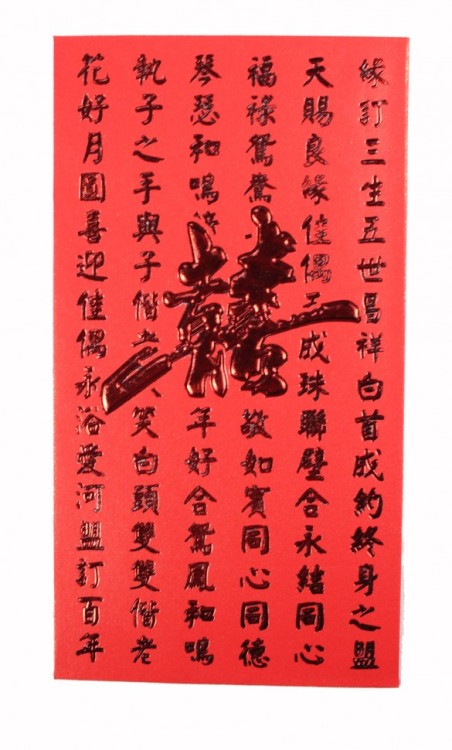 緣訂三生五世昌祥白首成約終身之盟
天賜良緣佳偶天成珠聯璧合永結同心
福祿鴛鴦敬如賓同心同德
琴瑟和鳴年好合鴛鳳和鳴
執子之手與子偕老笑白頭雙雙偕老
花好月圓喜迎佳偶永浴愛河盟訂百年
囍